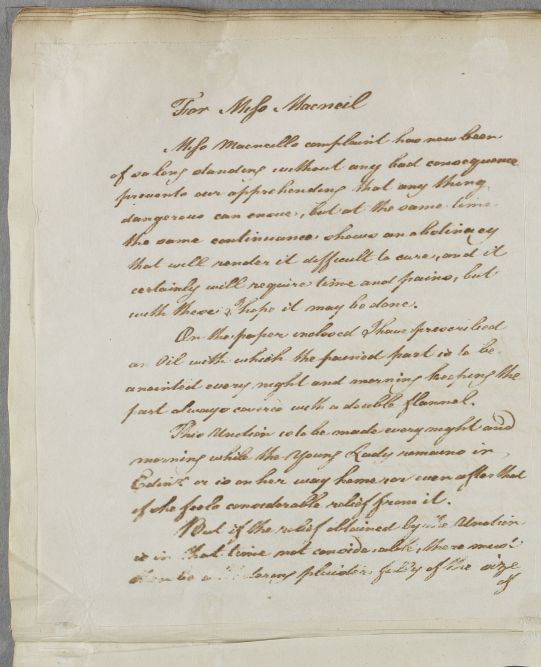 For Miss Macneil
Miss Macneills complaint has now been
of so long standing without any bad consequence
prevents our apprehending that any thing
dangerous can ensue, but at the same time
the same continuance shows an obstinacy
that will render it difficult to cure, and it
certainly will require time and pains, but
with these I hope it may be done.
On the paper inclosed I have prescribed
an Oil with which the pained part is to be
anointed every night and morning keeping the
part always covered with a double flannel.
This Unction is to be made every night and
morning while the Young Lady remains in
Edinr. or is on her way home or even after that
if she feels considerable relief from it.
But if the relief obtained by the Unction
is in that time not considerable, there must
then be a plaister of the size
of